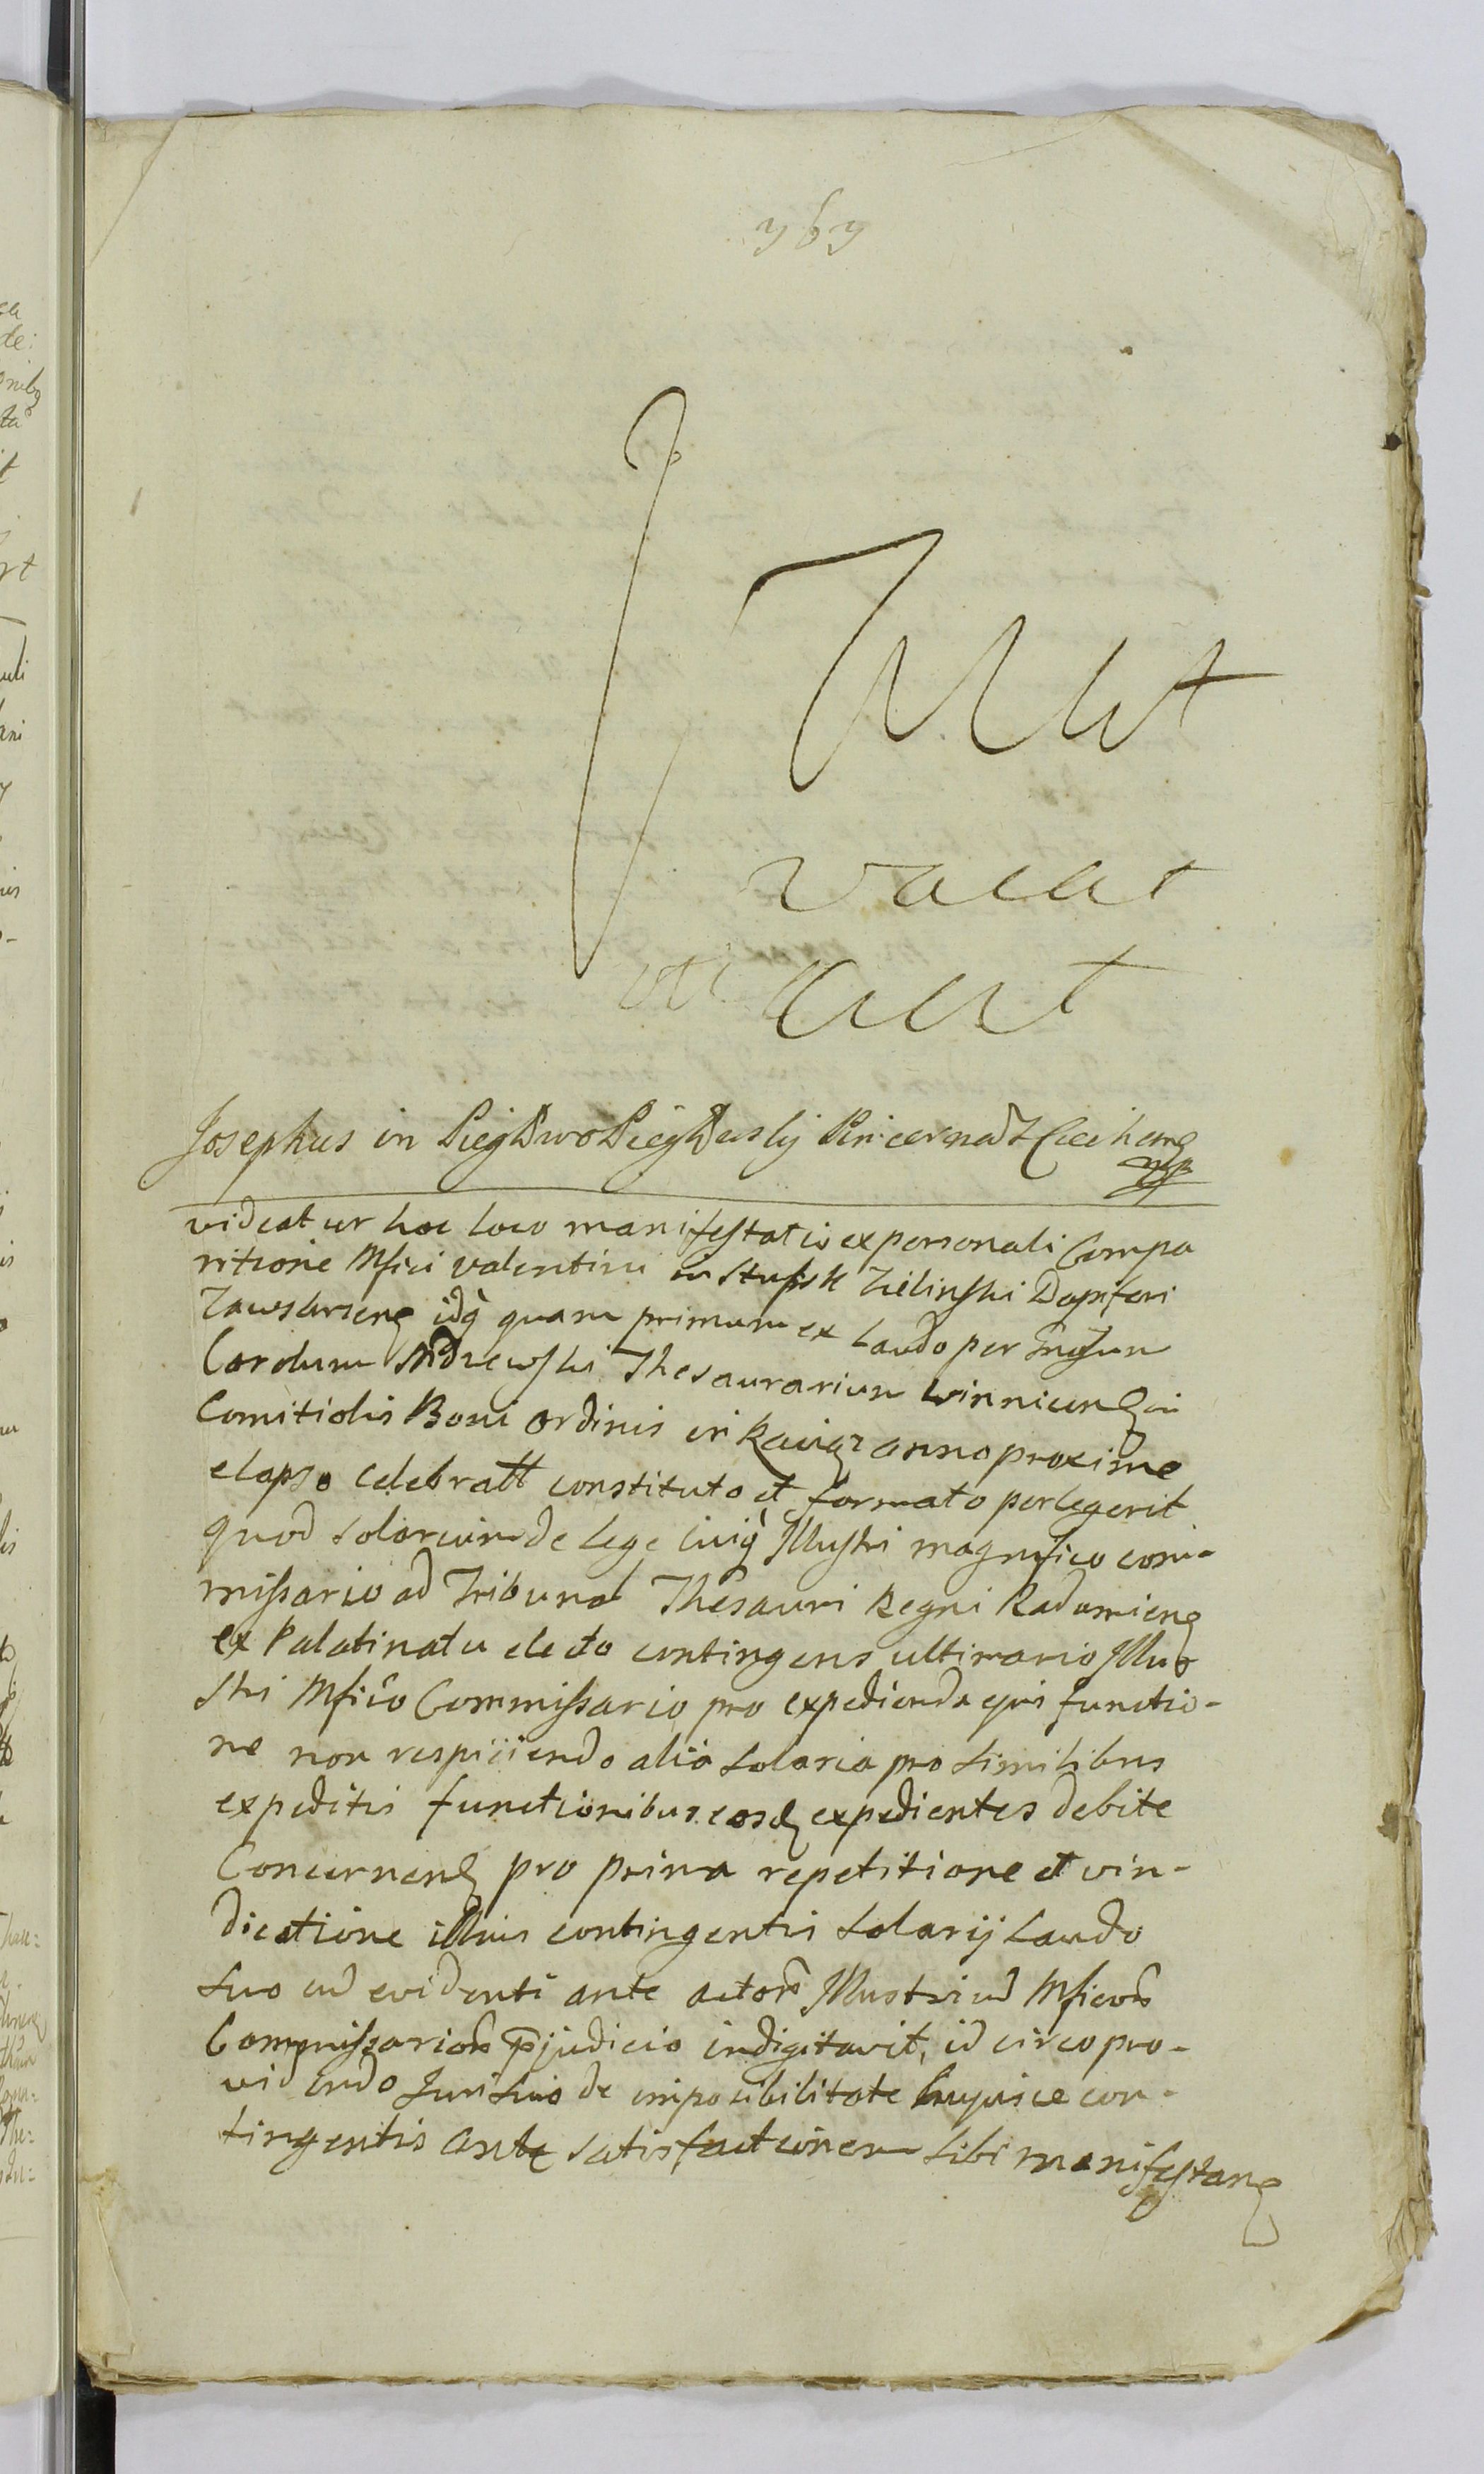 vacat
Josephus in Pieg Pincerna
videatur hoc loco manifestatio ex personali Compa
ritione Mfici Valentini in Stupsk Zielinski Dapiferi
Zawskrzeng idq quam primum ex Laudo per Mgfum
Carolum Thesaurarium Winnicen in
Comitiolis Boni Ordinis in Raciąz anno proxime
elapso celebratt constituto et formato perlegerit
quod solarium de lege cuiq Illustri magnifico com-
missario ad Tribunal Thesauri Regni Radomieng
ex Palatinatu electo contingens ultimario Illu
stri Mfico Commissario pro expedienda ejus functio-
ne non respiciendo alia solaria pro similibus
expeditis functionibus eosd expedientes debite
Concernen pro prima repetitione et vin-
dicatione illius contingentis solarij Laudo
suo cu evidenti ante actorū Illustriu Mficorū
Commissariorū pjudicio indigitavit, id circo pro-
videndo Juri suo de imposibilitate hujusce con-
tingentis ante satisfactionem sibi manifestan